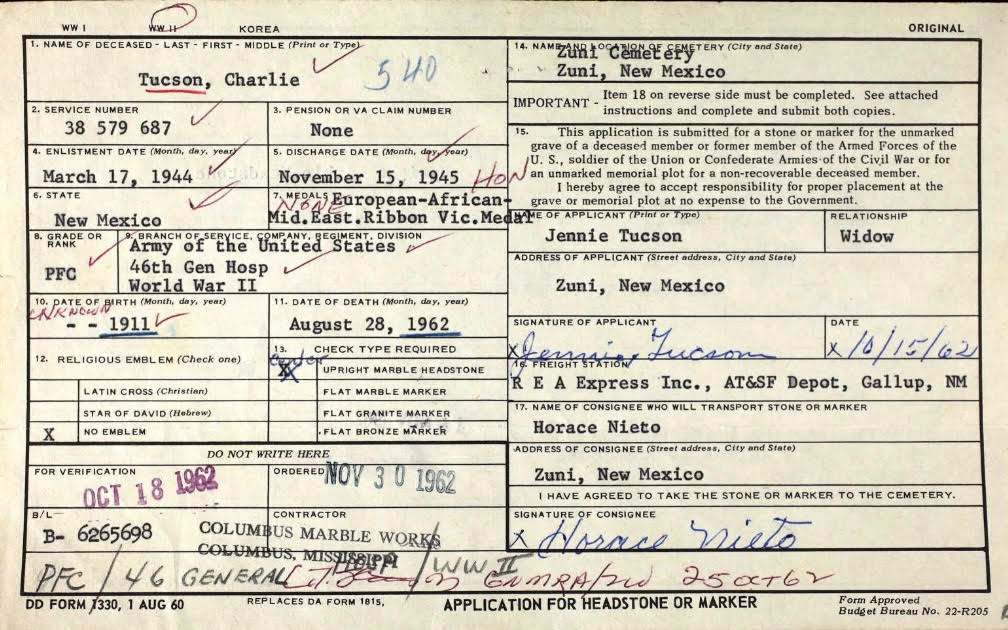 WW I WW II KOREA ORIGINAL
1. NAME OF DECEASED - LAST - FIRST - MIDDLE (Print or Type)
Tucson, Charlie
540
2. SERVICE NUMBER
38 579 687
3. PENSION OR VA CLAIM NUMBER
None
4. ENLISTMENT DATE (Month, day, year)
March 17, 1944
5. DISCHARGE DATE (Month, day, year)
November 15, 1945 HON
6. STATE
New Mexico
7. MEDALS
None
European-African-
Mid.East.Ribbon Vic.Medal
8. GRADE OR RANK
PFC
9. BRANCH OF SERVICE, COMPANY, REGIMENT, DIVISION
Army of the United States
46th Gen Hosp
World War II
10. DATE OF BIRTH (Month, day, year)
UNKNOWN
- - 1911
11. DATE OF DEATH (Month, day, year)
August 28, 1962
12. RELIGIOUS EMBLEM (Check one)
LATIN CROSS (Christian)
STAR OF DAVID (Hebrew)
X NO EMBLEM
13. CHECK TYPE REQUIRED
X UPRIGHT MARBLE HEADSTONE
FLAT MARBLE MARKER
FLAT GRANITE MARKER
FLAT BRONZE MARKER
DO NOT WRITE HERE
FOR VERIFICATION
OCT 18 1962
ORDERED
NOV 30 1962
B/L
B- 6265698
CONTRACTOR
COLUMBUS MARBLE WORKS
COLUMBUS, MISSISSIPPI
14. NAME AND LOCATION OF CEMETERY (City and State)
Zuni Cemetery
Zuni, New Mexico
IMPORTANT - Item 18 on reverse side must be completed. See attached
instructions and complete and submit both copies.
15. This application is submitted for a stone or marker for the unmarked
grave of a deceased member or former member of the Armed Forces of the
U. S., soldier of the Union or Confederate Armies of the Civil War or for
an unmarked memorial plot for a non-recoverable deceased member.
I hereby agree to accept responsibility for proper placement at the
grave or memorial plot at no expense to the Government.
NAME OF APPLICANT (Print or Type)
Jennie Tucson
RELATIONSHIP
Widow
ADDRESS OF APPLICANT (Street address, City and State)
Zuni, New Mexico
SIGNATURE OF APPLICANT
X Jennie Tucson
DATE
X 10/15/62
16. FREIGHT STATION
R E A Express Inc., AT&SF Depot, Gallup, NM
17. NAME OF CONSIGNEE WHO WILL TRANSPORT STONE OR MARKER
Horace Nieto
ADDRESS OF CONSIGNEE (Street address, City and State)
Zuni, New Mexico
I HAVE AGREED TO TAKE THE STONE OR MARKER TO THE CEMETERY.
SIGNATURE OF CONSIGNEE
X Horace Nieto
PFC / 46 GENERAL HOSP / WW II 25 OCT 62
DD FORM 1330, 1 AUG 60 REPLACES DA FORM 1815, APPLICATION FOR HEADSTONE OR MARKER Form Approved
Budget Bureau No. 22-R205